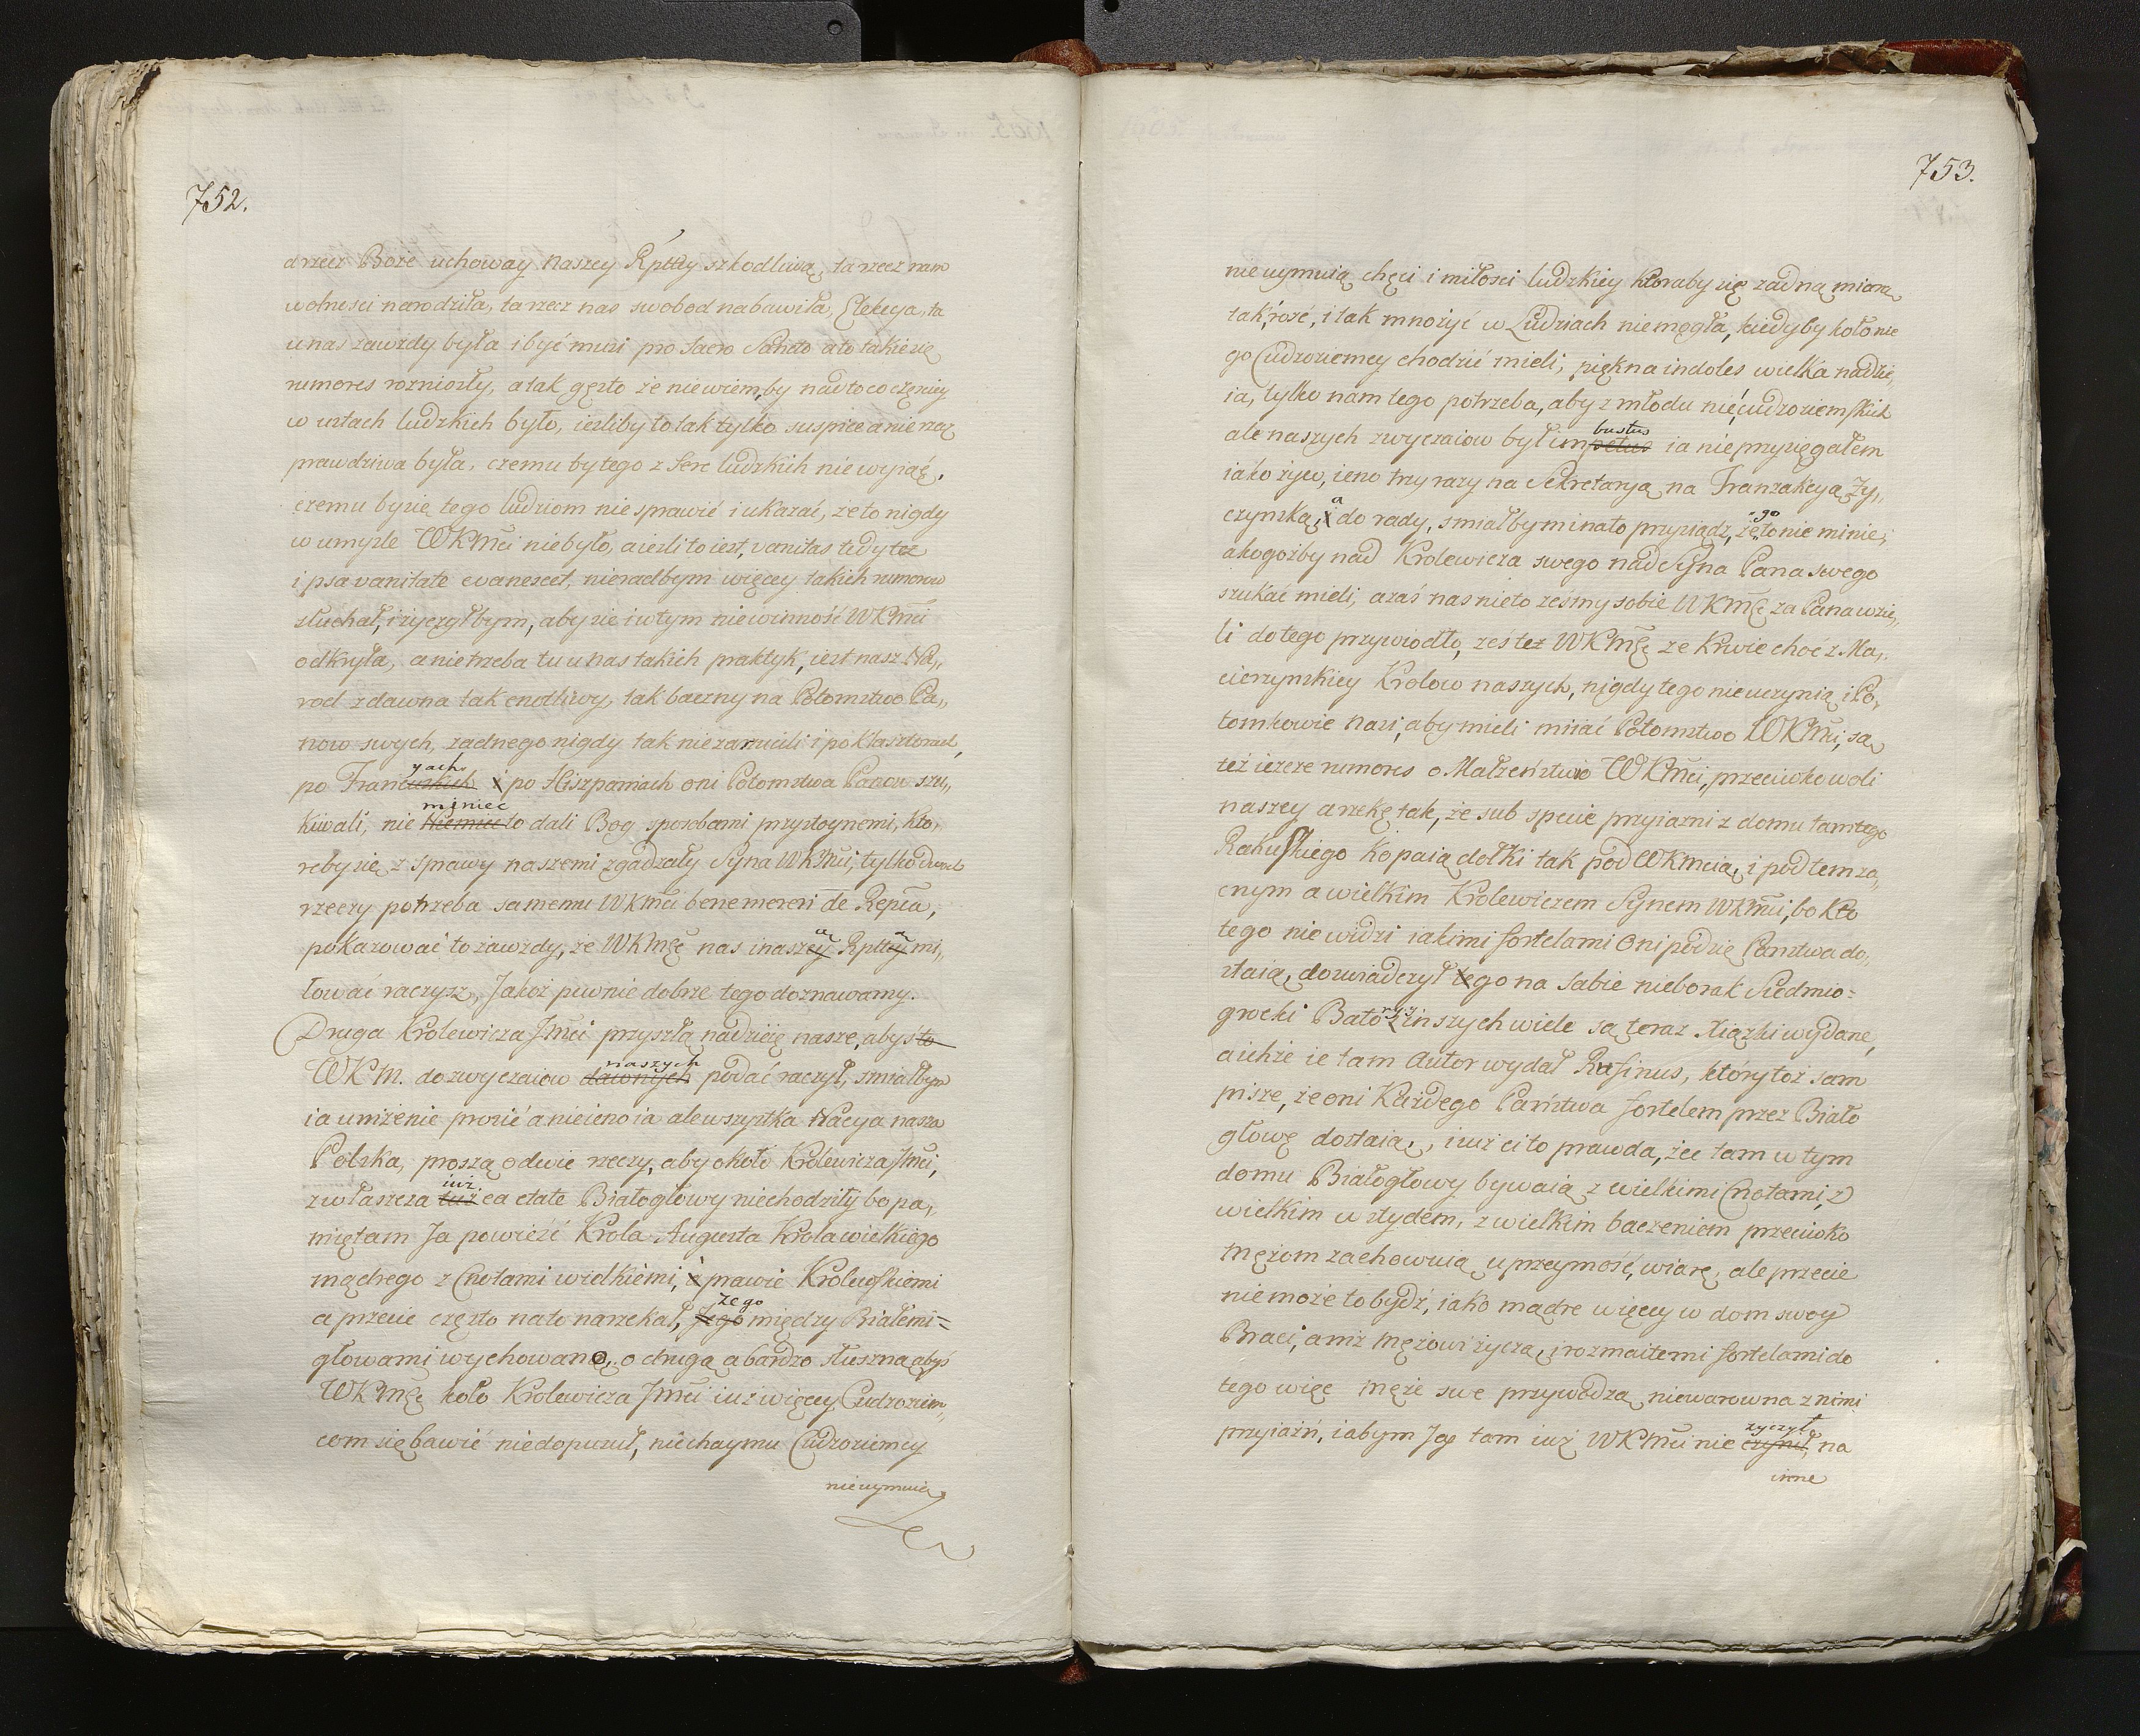 752.
a rzecz Boże uchoway naszey Rptey szkodliwą, ta rzecz nam
wolnosci narodziła, ta rzecz nas swobod nabawiła, Elekcya, ta
u nas zawżdy była i być musi pro Sacro Sancto ato takie się
rumores rozniosły, a tak gęsto że niewiem, by nad to co częsciey
w ustach ludzkich było, iesliby to tak tylko suspicea nie rzecz
prawdziwa była, czemu by tego z Serc ludzkich nie wyiąć,
czemu by się tego ludziom nie sprawić i ukazać, że to nigdy
w umysle WKMci niebyło, a iesli to iest, vanitas tedy też
ipsa vanitate evanescet, nieradbym więcey takich rumorow
słuchał, i życzył bym, aby sie i wtym niewinność WKMci
odkryła, a nie trzeba tu u nas takich praktyk, iest nasz Na„
rod z dawna tak cnotliwy, tak baczny na Potomstwo Pa„
now swych, zadnego nigdy tak nie zarzucili i po Klasztorach,
yach
po Francuzkich i po Hiszpaniach oni Potomstwa Panow szu„
miniec
kiwali, nie Niemiec to dali Bog sposobami przystoynemi, kto„
reby się z sprawy naszemi zgadzały Syna WKMci, tylko dwuch
rzeczy potrzeba samemu WKMci bene mereri de Repca,
pokazować to zawżdy, że WKMSć nas i naszey Rptey mi„
łować raczysz, Jakoż pewnie dobrze tego doznawamy.
Druga Krolewicza Jmci przyszłą nadzieię nasze, abyś to
naszych
WKM. do zwyczaiow dawnych podać raczył, smiałbym
ia uniżenie prosić a nie ieno ia ale wszystka Nacya nasza
Polska, proszą o dwie rzeczy, aby około Krolewicza Jmci,
iuż
zwłaszcza tuż ea etate Białogłowy niechodziły bo pa„
miętam Ja powieść Krola Augusta Krola wielkiego
mądrego z Cnotami wielkiemi, i prawie Krolewskiemi
że go
a przecie często na to narzekał, Jego między Białemi=
głowami wychowano, o drugą a bardzo słuszną abyś
WKMSć koło Krolewicza Jmci iuż więcey Cudzoziem„
com się bawić niedopuscił, niechaymu Cudzoziemcy
nie uymuią
753.
nie uymuią chęci i miłosci ludzkiey ktoraby się żadną miarą
tak rość, i tak mnożyć w Ludziach niemogła, kiedyby koło nie
go Cudzoziemcy chodzić mieli, piękna indoles wielka nadzie„
ia, tylko nam tego potrzeba, aby z młodu nie cudzoziemskich
butus
ale naszych zwyczaiow był impetus ia nie przysięgałem
iako żyw, ieno trzy razy na Sekretaryą na Tranzakcyą Ży„
a go
czynską, i do rady, smiałbym i na to przysiądz, że to nie minie,
a kogożby nad Krolewicza swego nad Syna Pana swego
szukać mieli, azaś nas nie to żeśmy sobie WKMSć za Pana wzie„
li do tego przywiodło, żeś też WKMSć ze Krwie choć z Ma„
cierzynskiey Krolow naszych, nigdy tego nie uczynią i Po„
tomkowie nasi, aby mieli miiać Potomstwo WKMci, są
też ieszcze rumores o Małżeństwie WKMci, przeciwko woli
naszey a rzekę tak, że sub specie przyiazni z domu tamtego
Rakuskiego kopaią dołki tak pod WKMcią, i pod tem za„
cnym a wielkim Krolewiczem Synem WKMci, bo kto
tego nie widzi iakimi fortelami Oni podzie Panstwa do„
staią, doswiadczył tego na sabie nieborak Siedmio=
rysz
grocki Bato z inszych wiele są teraz Xiązki wydane,
aichże ie tam Autor wydał Rusinus, ktory toż sam
pisze, że oni Każdego Państwa fortelem przez Biało
głowę dostaią, iuż ci to prawda, że tam w tym
domu Białogłowy bywaią z wielkimi Cnotami, z
wielkim wstydem, z wielkim baczeniem przeciwko
Mężom zachowuią uprzeymość, wiarę, ale przecie
nie może to bydź, iako mądre więcey w dom swoy
Braci, a niż Mężowi życzą, i rozmaitemi fortelami do
tego więc męże swe przywodzą niewarowna z nimi
życzył
przyiaźń, iabym Ja tam iuż WKMci nie czynił, na
inne